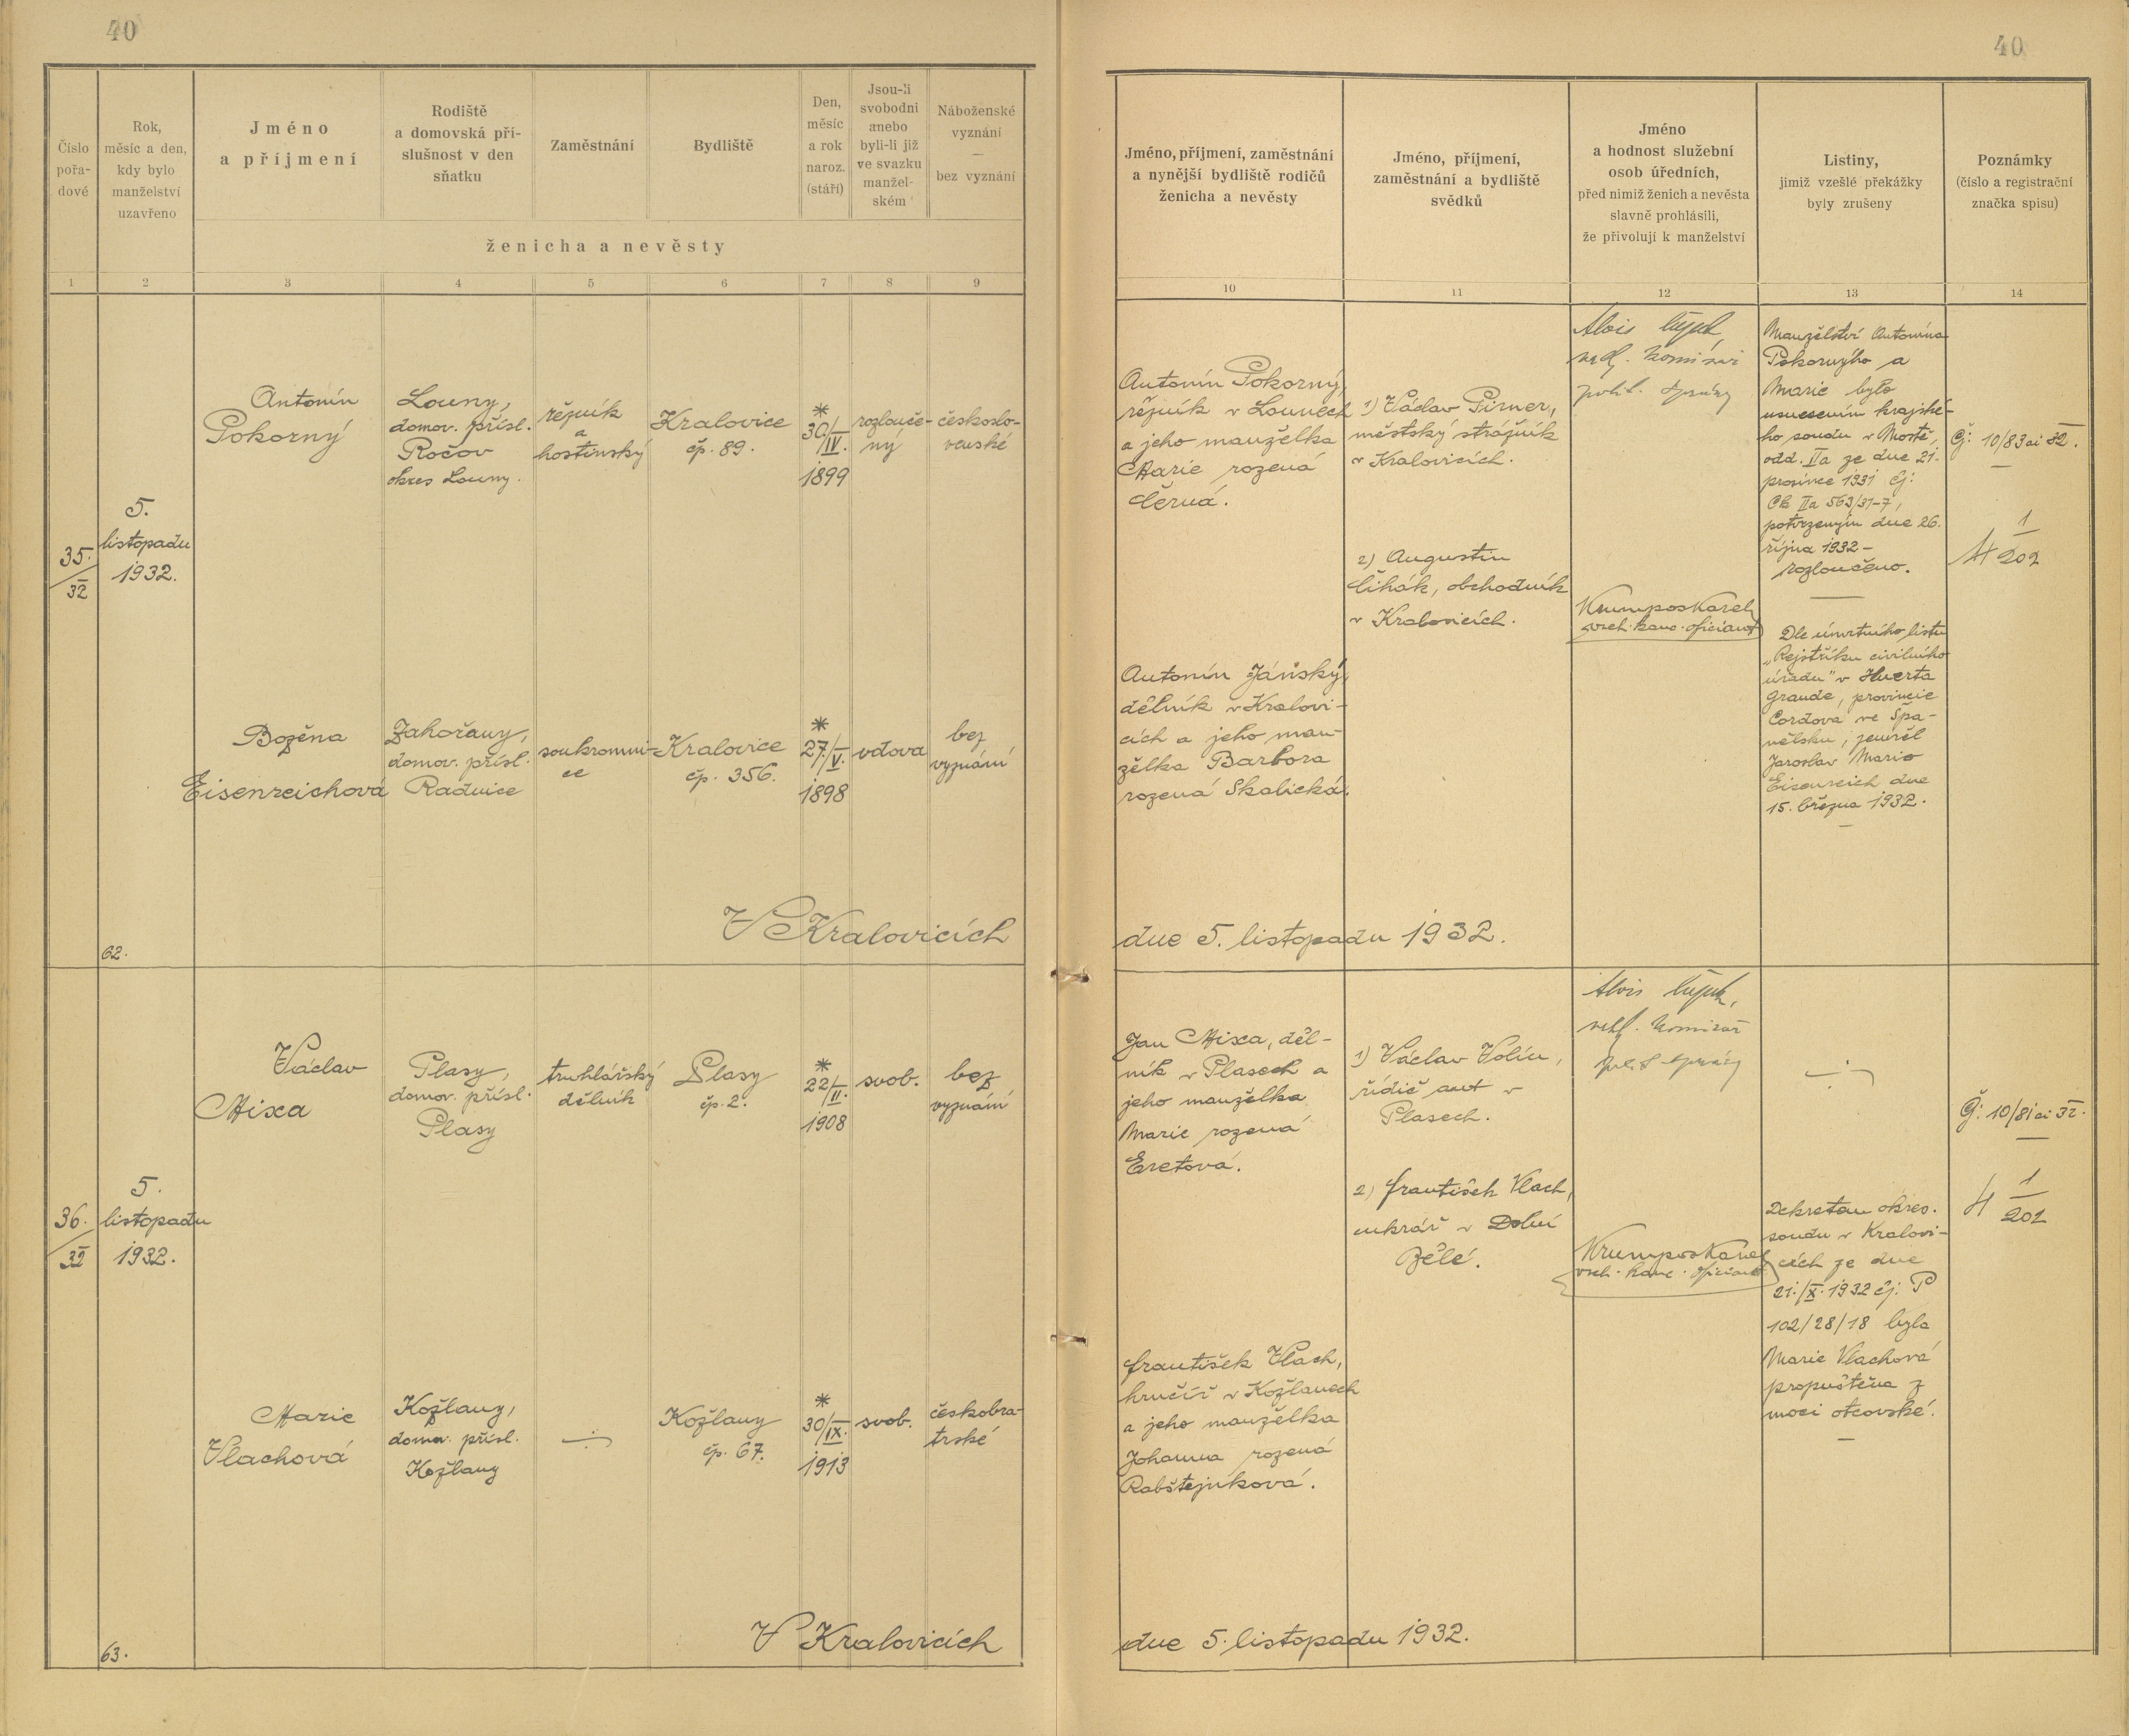 40
40
Číslo
pořa-
dové
Rok,
měsíc a den,
kdy bylo
manželství
uzavřeno
Jméno
a příjmení
Rodiště
a domovská pří-
slušnost v den
sňatku
Zaměstnání
Bydliště
Den,
měsíc
a rok
naroz.
(stáří)
Jsou-li
svobodni
anebo
byli-li již
ve svazku
manžel-
ském
Náboženské
vyznání
—
bez vyznání
ženicha a nevěsty
1 2 3 4 5 6 7 8 9
Jméno, příjmení, zaměstnání
a nynější bydliště rodičů
ženicha a nevěsty
Jméno, příjmení,
zaměstnání a bydliště
svědků
Jméno
a hodnost služební
osob úředních,
před nimiž ženich a nevěsta
slavně prohlásili,
že přivolují k manželství
Listiny,
jimiž vzešlé překážky
byly zrušeny
Poznámky
(číslo a registrační
značka spisu)
10 11 12 13 14
35.
32
5.
listopadu
1932.
62.
Antonín
Pokorný
Louny,
domov. přísl.
Ročov
okres Louny.
řezník
a
hostinský
Kralovice
čp. 89.
*
30/IV.
1899
rozlouče-
ný
českoslo-
venské
Božena
Eisenreichová
Zahořany,
domov. přísl.
Radnice
soukromni-
ce
Kralovice
čp. 356.
*
27/V.
1898
vdova
bez
vyznání
V Kralovicích
Antonín Pokorný,
řezník v Lounech
a jeho manželka
Marie rozená
Černá.
Antonín Jánský,
dělník v Kralovi-
cích a jeho man-
želka Barbora
rozená Skalická.
1) Václav Pirner,
městský strážník
v Kralovicích.
2) Augustin
Čihák, obchodník
v Kralovicích.
Alois
Krumpos Karel
vrch. kanc. oficiant
Manželství Antonína
Pokorného a
Marie bylo
usnesením krajské-
ho soudu v Mostě,
odd. IIa ze dne 21.
prosince 1931 čj:
Ck IIa 563/31-7,
potvrzeným dne 26.
října 1932 -
rozloučeno.
Dle úmrtního listu
„Rejstříku civilního
úřadu" v Huerta
Grande, provincie
Cordova ve Špa-
nělsku, zemřel
Jaroslav Mario
Eisenreich dne
15. března 1932.
Čj: 10/83 ai 32.
1
H 202
dne 5. listopadu 1932.
36.
32
5.
listopadu
1932.
63.
Václav
Mixa
Plasy,
domov. přísl.
Plasy
truhlářský
dělník
Plasy
čp. 2.
*
22/II.
1908
svob.
bez
vyznání
Marie
Vlachová
Kožlany,
domov. přísl.
Kožlany
Kožlany
čp. 67.
*
30/IX.
1913
svob.
českobra-
trské
V Kralovicích
Jan Mixa, děl-
ník v Plasech a
jeho manželka
Marie rozená
Eretová.
František Vlach,
hrnčíř v Kožlanech
a jeho manželka
Johanna rozená
Rabštejnková.
1) Václav Volín,
řidič aut v
Plasech.
2) František Vlach,
cukrář v Dolní
Bělé.
Alois
Krumpos Karel
vrch. kanc. oficiant
Dekretem okres.
soudu v Kralovi-
cích ze dne
21./X. 1932 čj: P
102/28/18 byla
Marie Vlachová
propuštěna z
moci otcovské.
Čj: 10/81 ai 32.
1
H 202
dne 5. listopadu 1932.